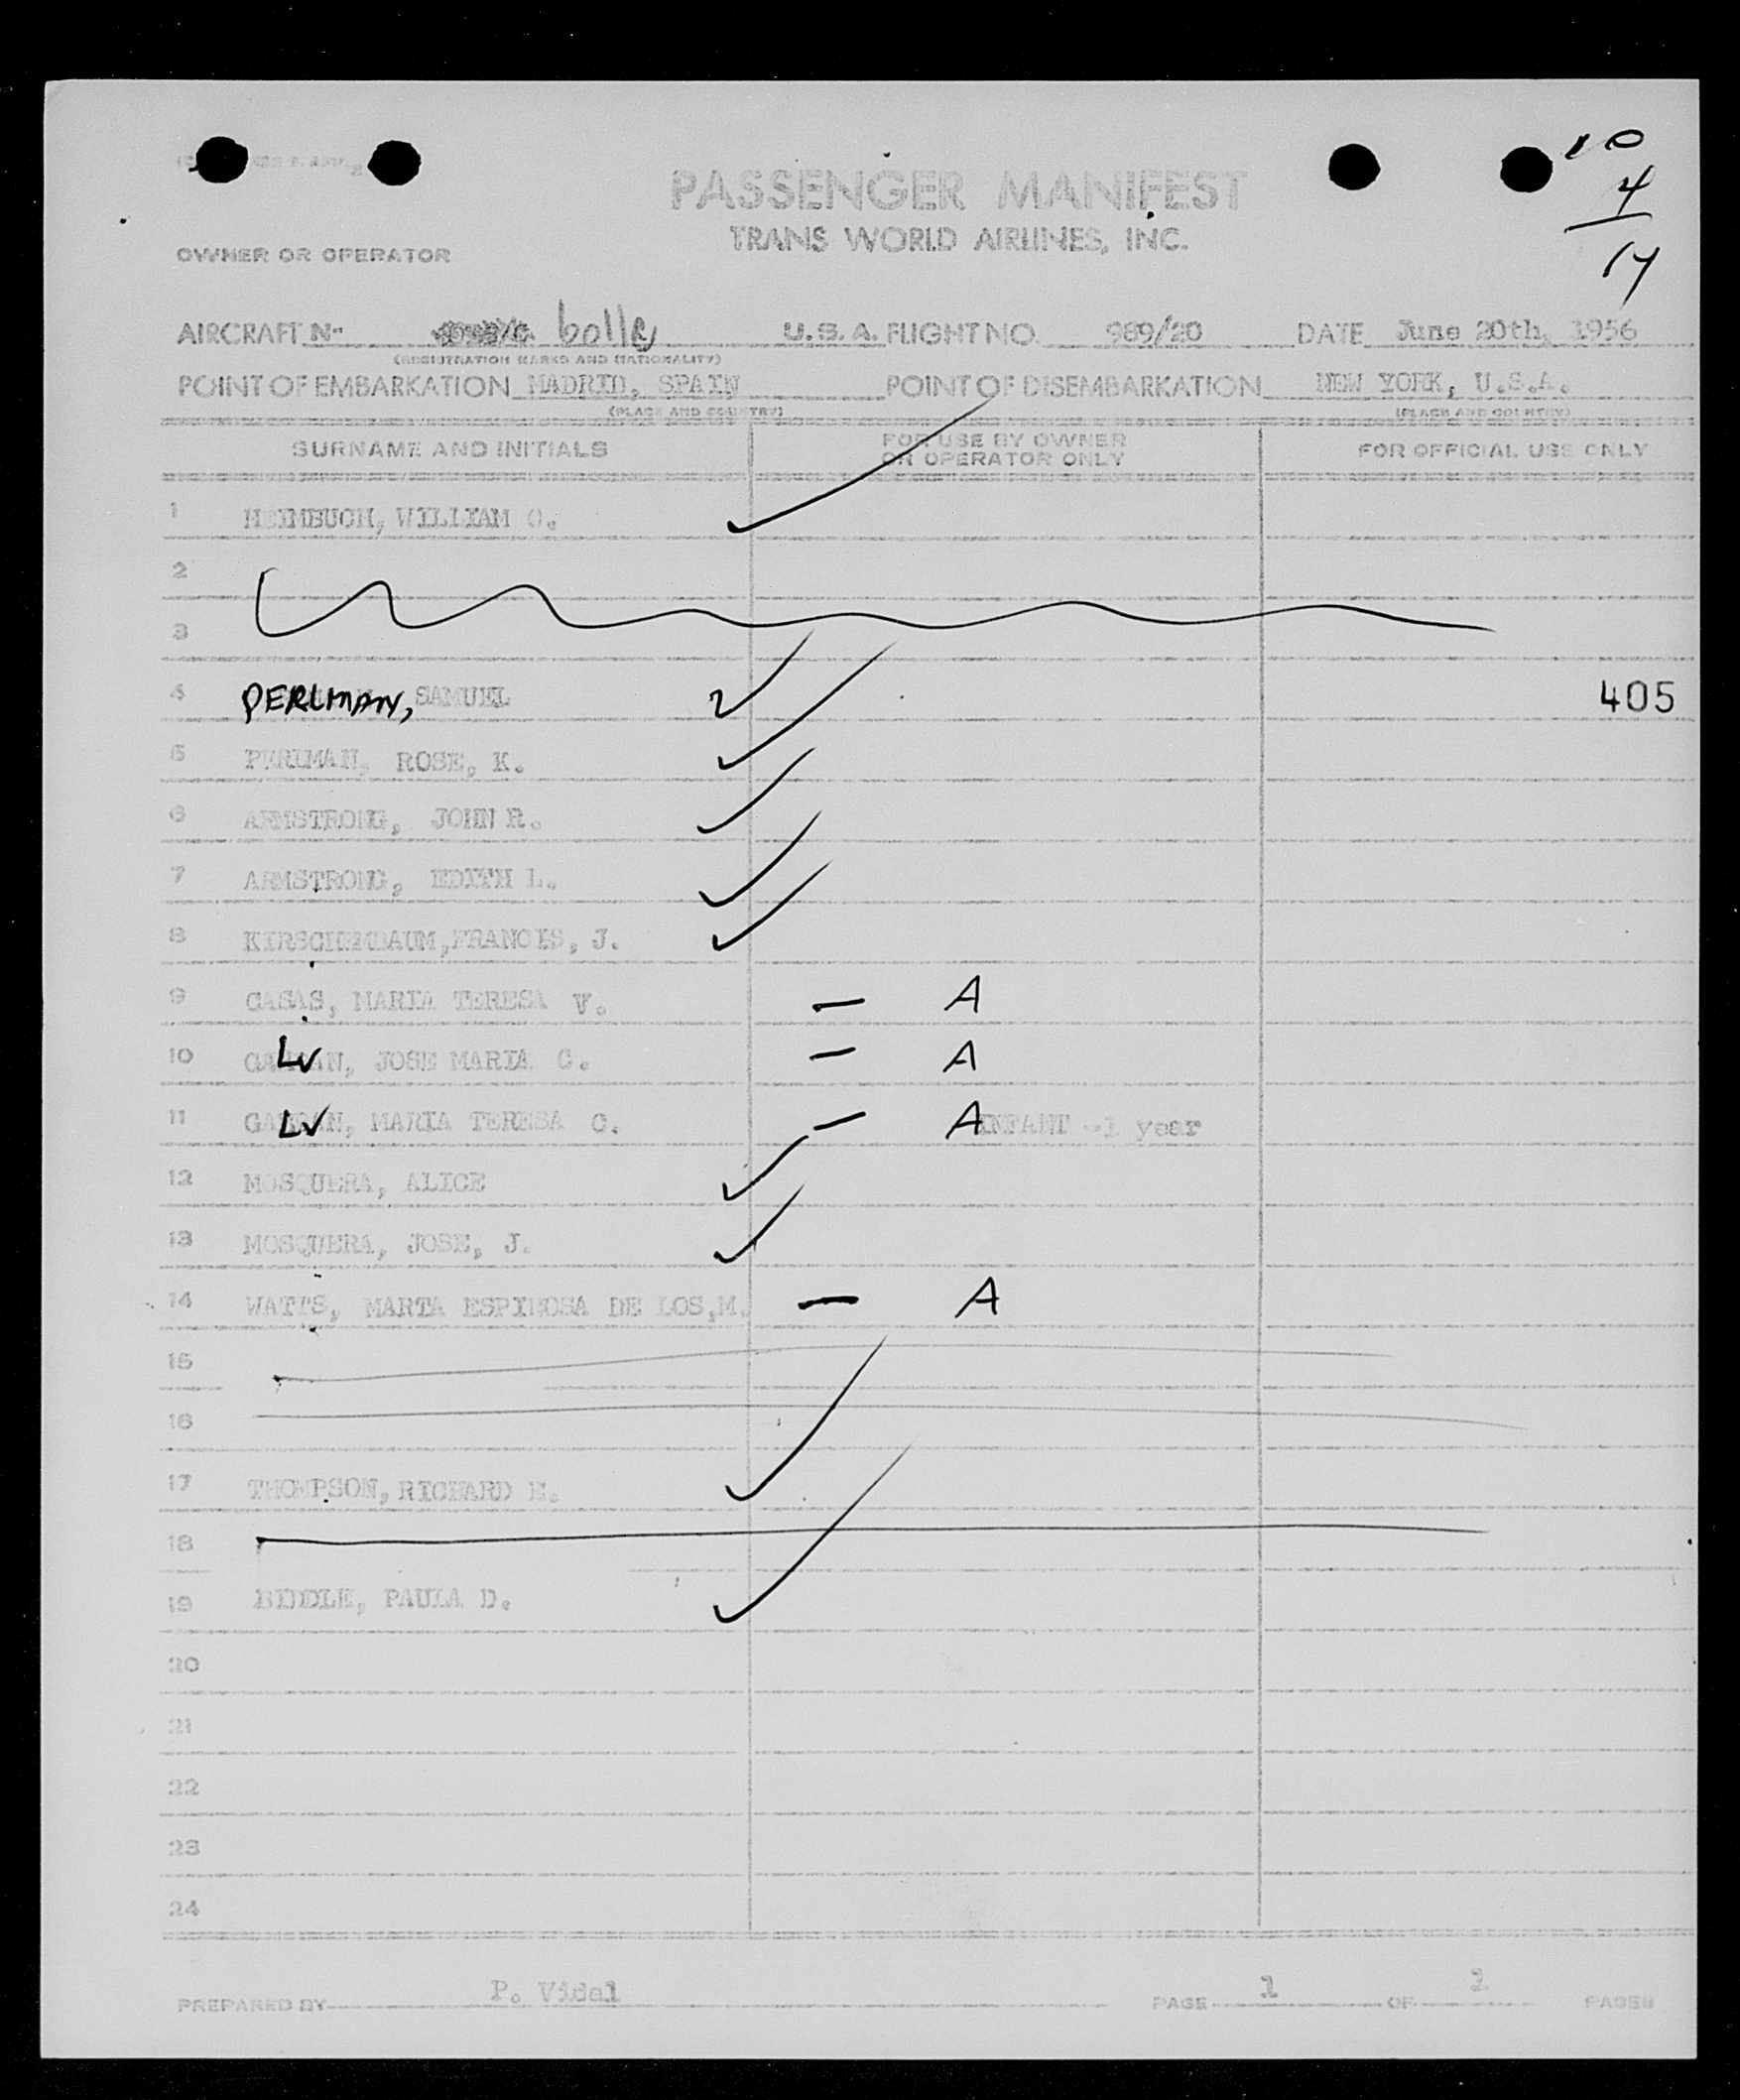 10
4
14
PASSENGER MANIFEST
TRANS WORLD AIRLINES, INC.
OWNER OR OPERATOR
AIRCRAFT Nº U.S.A. FLIGHT NO. 989/20 DATE June 20th, 1956
(REGISTRATION MARKS AND NATIONALITY)
POINT OF EMBARKATION MADRID, SPAIN POINT OF DISEMBARKATION NEW YORK, U.S.A.
(PLACE AND COUNTRY) (PLACE AND COUNTRY)
SURNAME AND INITIALS FOR USE BY OWNER OR OPERATOR ONLY FOR OFFICIAL USE ONLY
1 HEIMBUCH, WILLIAM O.
2
3
4 PERLMAN, SAMUEL 405
5 PERLMAN, ROSE, K.
6 ARMSTRONG, JOHN R.
7 ARMSTRONG, EDITH L.
8 KIRSCHENBAUM, FRANCIS, J.
9 CASAS, MARIA TERESA V. — A
10 JOSE MARIA C. — A
11 MARIA TERESA C. — A INFANT -1 year
12 MOSQUERA, ALICE
13 MOSQUERA, JOSE, J.
14 WATTS, MARTA ESPINOSA DE LOS, M. — A
15
16
17 THOMPSON, RICHARD E.
18
19 BIDDLE, PAULA D.
20
21
22
23
24
PREPARED BY P. Vidal PAGE 1 OF 1 PAGES